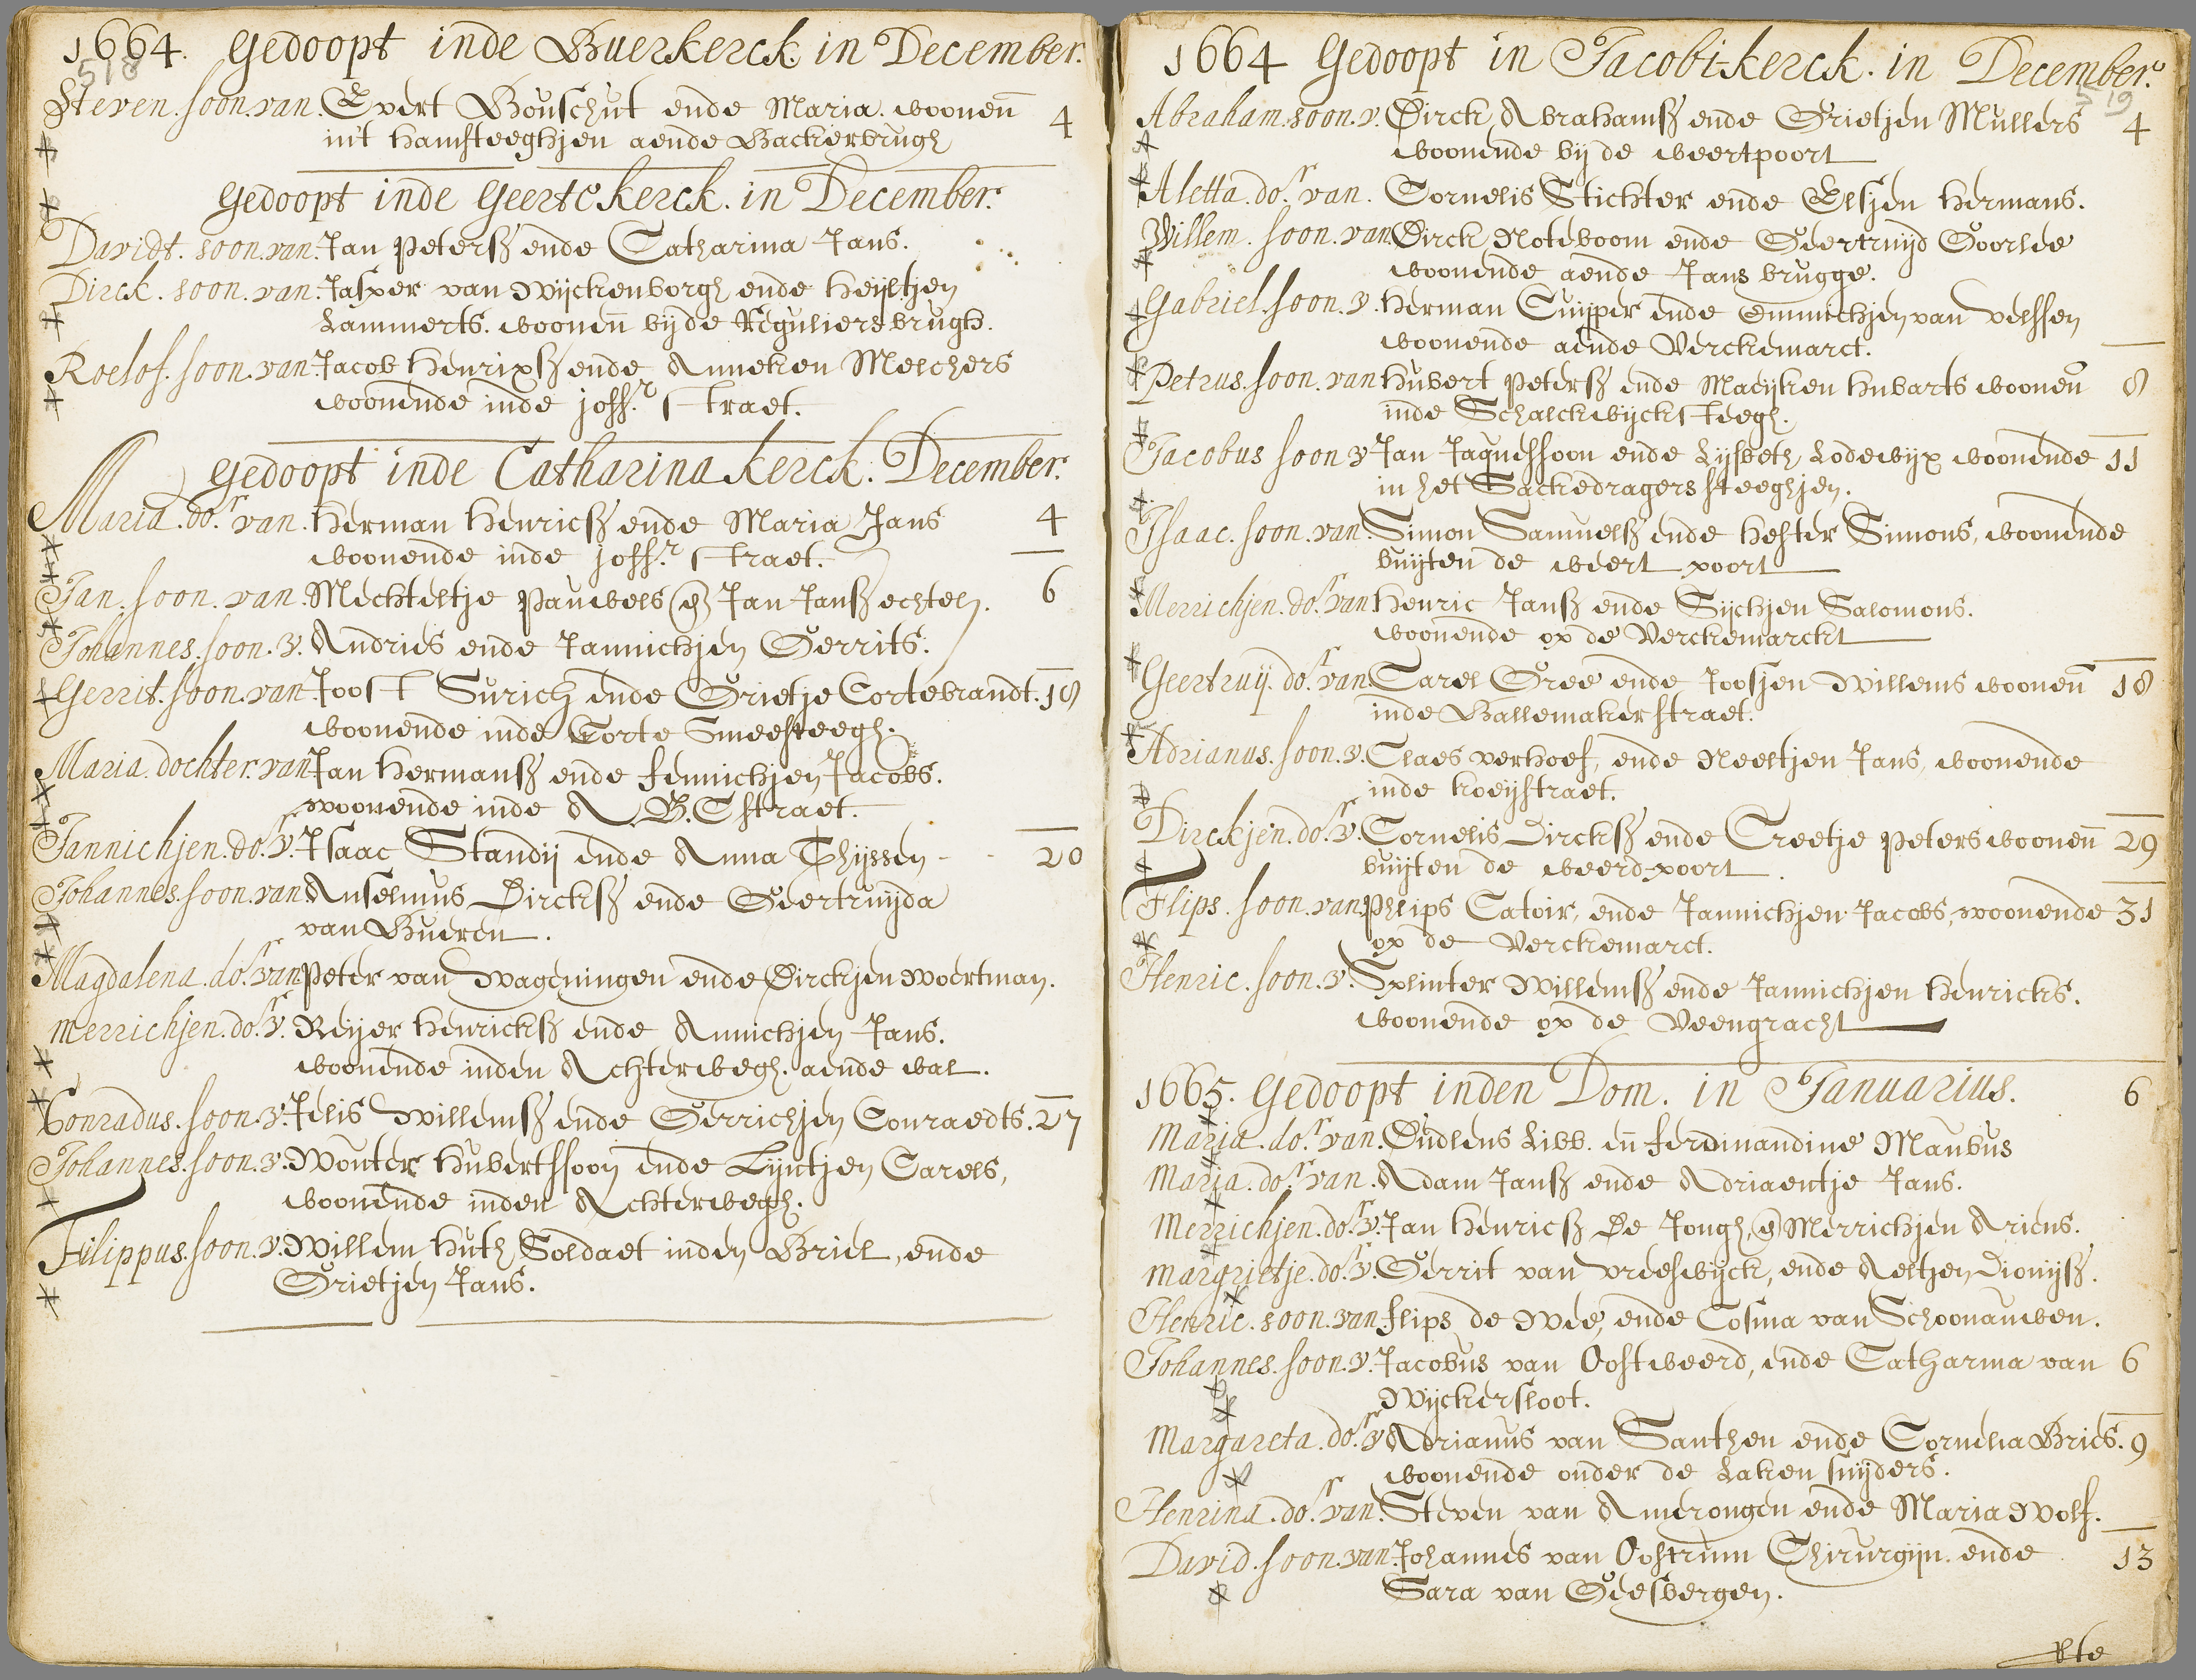 1664. Gedoopt inde Buerkerck in December.
518
Steven. soon. van. Evert Bouschut ende Maria. woonen̄ 4
in't hamsteeghjen aende Backerbrugh
Gedoopt inde Geertekerck. in December.
Davidt. soon. van. Jan Petersz ende Catharina Jans.
Dirck. soon. van. Jasper van Wijckenborgh ende Heijltjen
Lammerts. woonen̄ bij de Reguliersbrugh.
Roelof. soon. van. Jacob Henrixsz ende Anneken Melchers
woonende inde joffr. straet.
Gedoopt inde Catharina kerck. December.
Maria. dor. van. Herman Henricsz ende Maria Jans 4
woonende inde joffr. straet.
Jan. soon. van. Mechteltje Pauwels en Jan Jansz echtel. 6
Johannes. soon. v. Andries ende Jannichjen Gerrits.
Gerrit. soon. van Joost Surich ende Grietje Cortebrandt. 18
woonende inde Corte Smeesteegh.
Maria. dochter. van Jan Hermansz ende Fennichjen Jacobs.
woonende inde A.B.C straet.
Jannichjen. dor. v. Isaac Standij ende Anna Thijssen 20
Johannes. soon. van Anselmus Dircksz ende Geertruijda
van Bueren.
Magdalena. dor. van Peter van Wageningen ende Dirckjen Woertman.
Merrichjen. dor. v. Reijer Henricksz ende Annichjen Jans.
woonende inden Achterwegh. aende wal.
Conradus. soon. v. Jelis Willemsz ende Gerrichjen Conraedts. 27
Johannes. soon. v. Wouter Hubertssoon ende Lijntjen Carels,
woonende inden Achterwegh.
Filippus. soon. v. Willem Huth Soldaet inden Briel, ende
Grietjen Jans.
1664 Gedoopt in Jacobi-kerck. in December.
519
Abraham. soon. v. Dirck Abrahamsz ende Grietjen Mullers 4
woonende bij de weertpoort
Aletta. dor. van. Cornelis Stichter ende Elsjen Hermans.
Willem. soon. van. Dirck Noteboom ende Geertruijd Goorlee
woonende aende Jans brugge.
Gabriel. soon. v. Herman Cuijper ende Emmichjen van Velssen
woonende aende Verckemarct.
Petrus. soon. van Hubert Petersz ende Maeijken Hubarts woonen̄ 8
inde Schalckwijcksteegh.
Jacobus soon v Jan Jaquessoon ende Lijsbeth Lodewijx woonende 11
in het Sackedragerssteeghjen.
Isaac. soon. van. Simon Samuelsz ende Hester Simons, woonende
buijten de weert poort
Merrichjen. dor. van Henric Jansz ende Sijchjen Salomons.
woonende op de Verckemarckt
Geertruij. dor. van. Carel Gree ende Joosjen Willems woonen̄ 18
inde Ballemakerstraet.
Adrianus. soon. v. Claes verhoef, ende Neeltjen Jans, woonende
inde koeijstraet.
Dirckjen. dor. v. Cornelis Dircksz ende Creetje Peters woonen̄ 29
buijten de weerd-poort.
Flips. soon. van Phlips Catoir, ende Jannichjen Jacobs, woonende 31
op de Verckemarct.
Henric. soon. v. Splinter Willemsz ende Jannichjen Henricks.
woonende op de Veengracht
1665. Gedoopt inden Dom. in Januarius. 6
Maria. dor. van. Eudlens Libb. en̄ Ferdinandine Maubus
Maria. dor. van. Adam Jansz ende Adriaentje Jans.
Merrichjen. dor. v. Jan Henricsz De Jongh, en Merrichjen Ariens.
Margrietje. dor. v. Gerrit van Vreeswijck, ende Aeltjen Dionijsz.
Henric. soon. van Flips de Wee, ende Cosina van Schoonauwen.
Johannes. soon. v. Jacobus van Oostweerd, ende Catharina van 6
Wijckersloot.
Margareta. dor. v Adrianus van Santhen ende Cornelia Bries. 9
woonende onder de Laken snijders.
Henrina. dor. van. Steven van Amerongen ende Maria Wolf.
David. soon. van. Johannes van Oostrum Chirurgijn ende 13
Sara van Geesbergen.